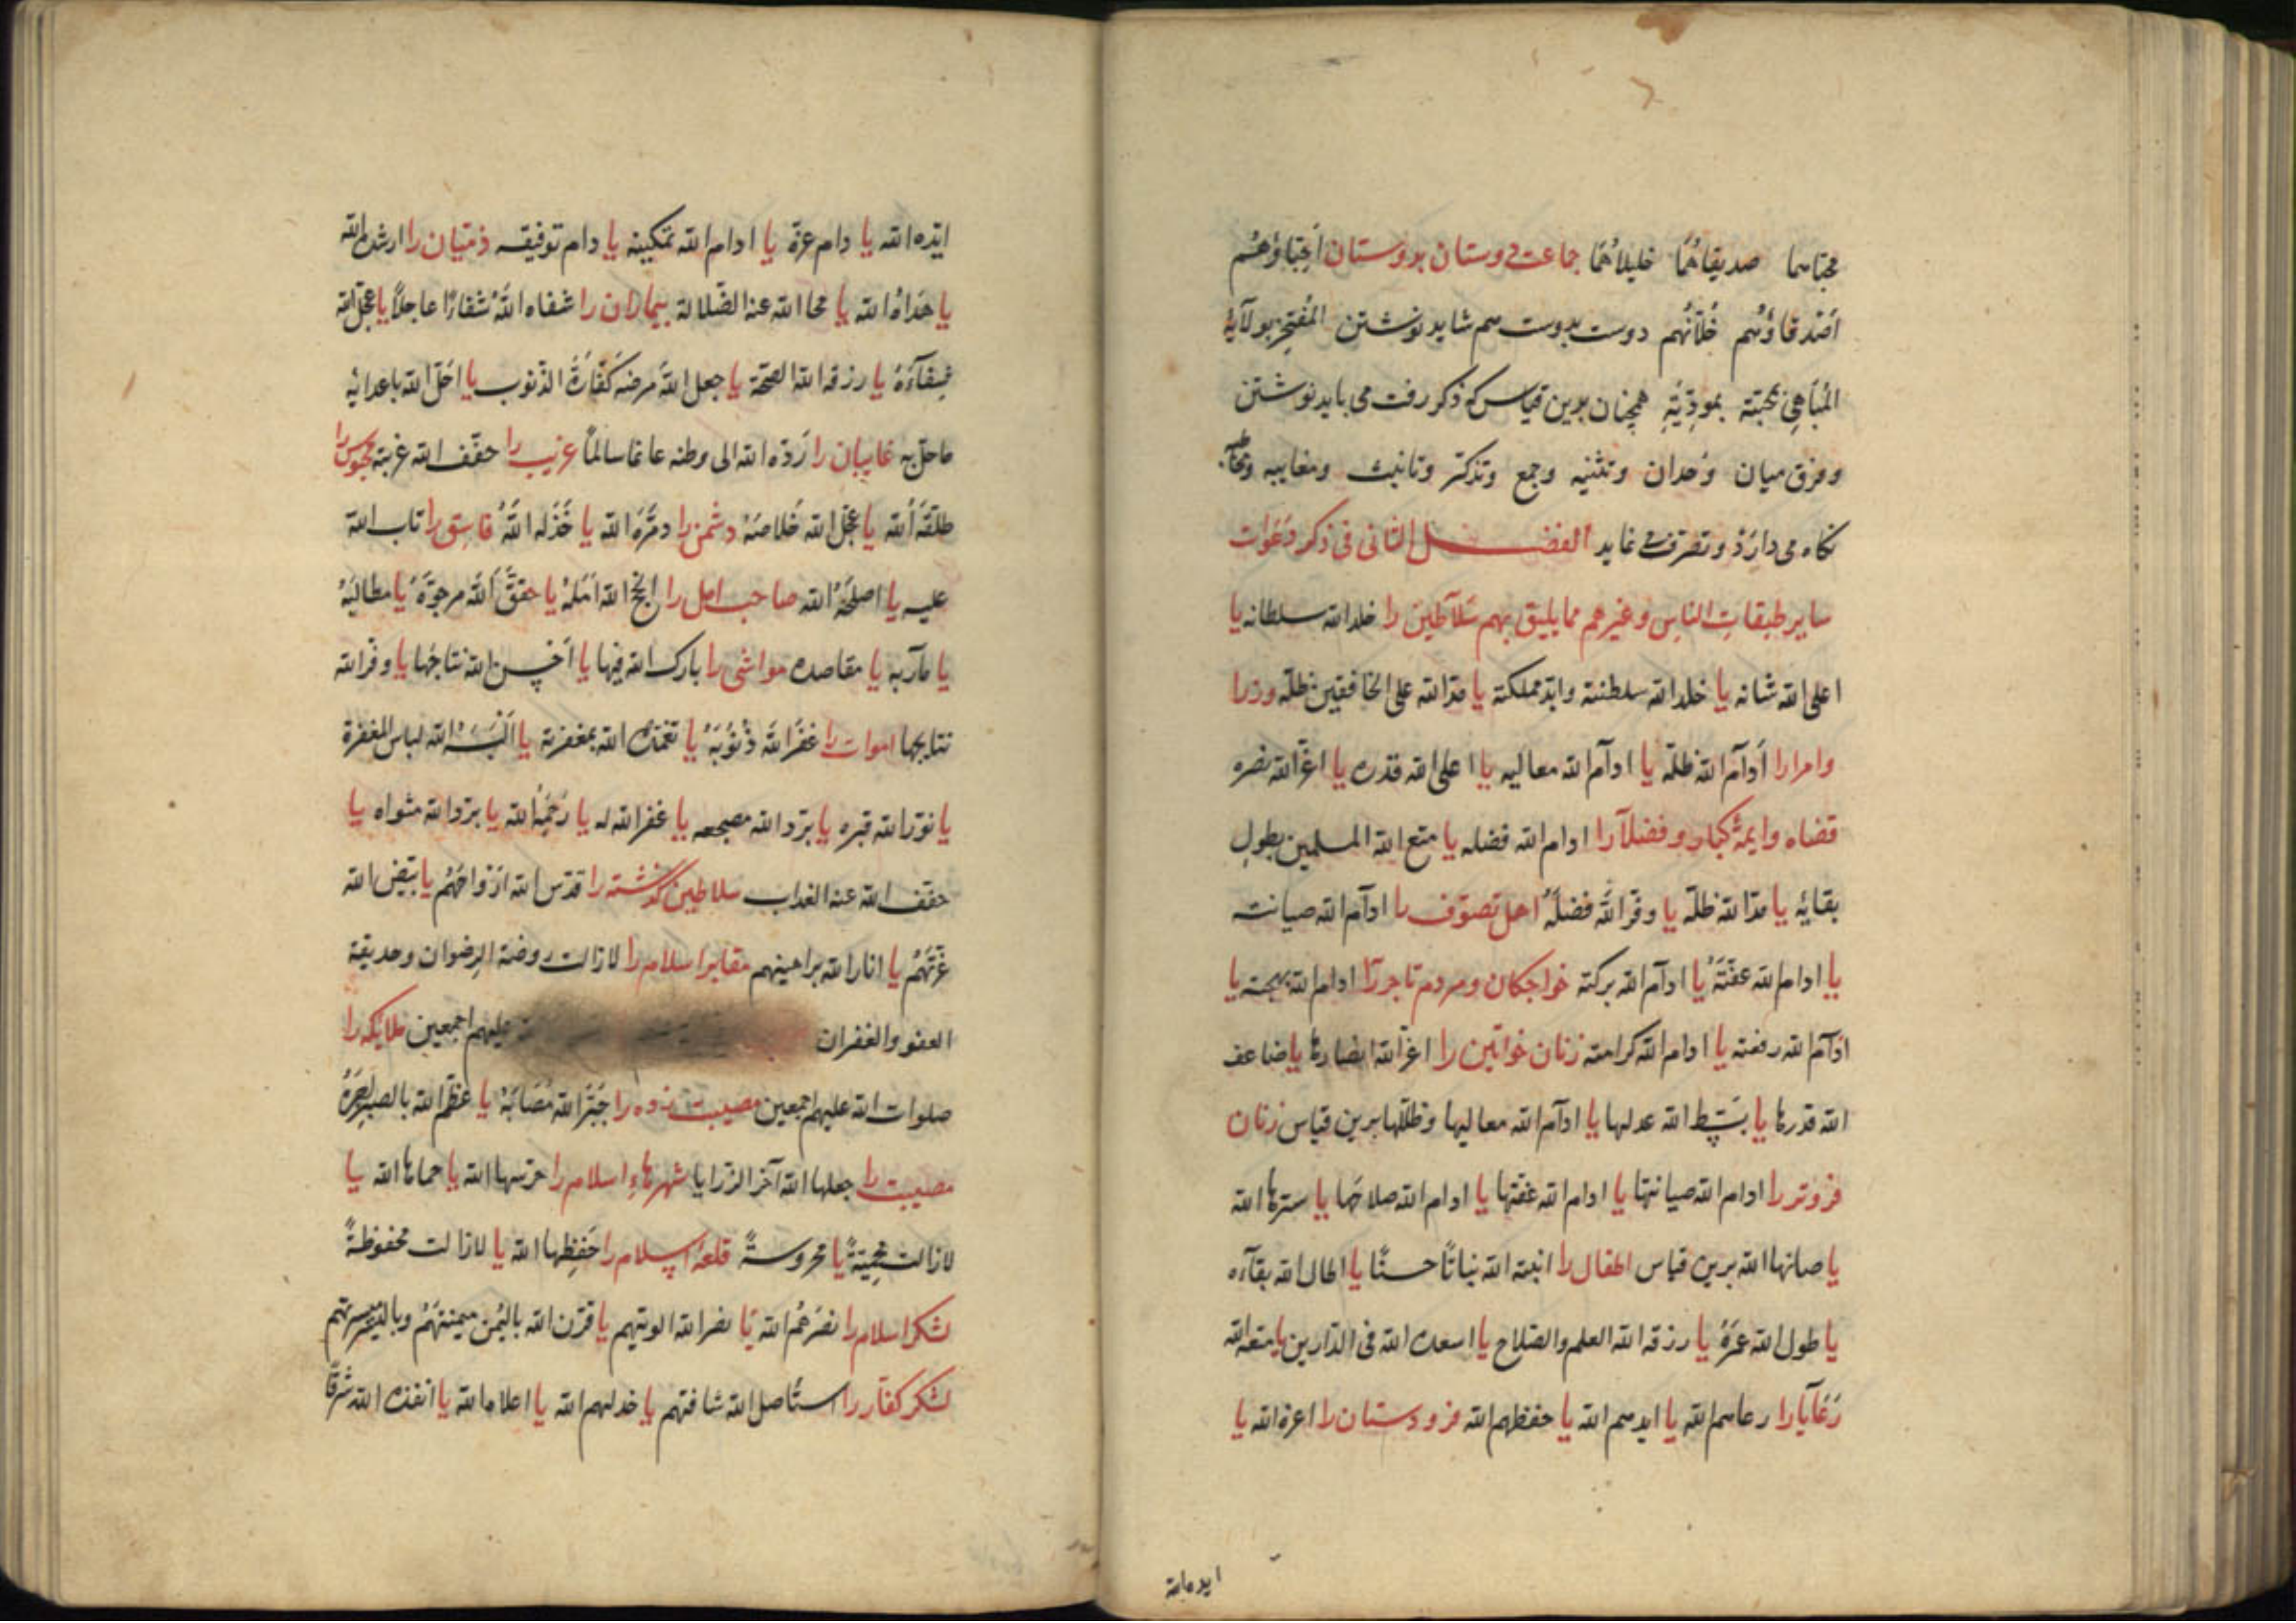 محباهما صدیقاهُما خلیلاهُما جماعت دوستان بدوستان اَحِبّاؤهُم
اَصْدِقاؤُهم خُلّانُهم دوست بدوست هم شاید نوشتن المُفتَخِر بولآیهٔ
المُباهِی بمحبته بمودّتِهِ همچنان بدین قیاس که ذکر رفت می باید نوشتن
وفرق میان وُحدان وتثنیه وجمع وتذکیر وتانیث ومغایبه
نکاه می دارَدْ وتصرف می نماید الفصــــل الثانی فی ذکر دَعَوات
سایر طبقات الناس وغیرهم مما یلیق بهم سَلآطین را خلد الله سلطانه یا
اعلی الله شانه یا خلد الله سلطنته وابّد مملکته یا مدّ الله علی الخافقین ظلّه وزرا
وامرا را اَدآمَ الله ظلّه یا ادآم الله معالیه یا اعلی الله قدره یا اعزّ الله نصره
قضاه وایمهٔ کبار وفضلآ را ادام الله فضله یا متع الله المسلمین بطول
بقایهٔ یا مدّ الله ظلّه یا وفّر اللهُ فضلَهُ اهل تصوّف را ادآم الله صیانته
یا ادام الله عفّتَهُ یا ادآم الله برکته خواجکان ومردم تاجر را ادام الله بهجته یا
ادآم الله رفعته یا ادام الله کرامته زنان خواتین را اعزّ الله انصارها یا ضاعف
الله قدرها یا بَسَط الله عدلها یا ادآم الله معالیها وظلّلها برین قیاس زنان
فروتر را ادام الله صیانتها یا ادام الله عفّتها یا ادام الله صلاحَها یا سترها الله
یا صانها الله برین قیاس اطفال را انبته الله نباتًا حسنًا یا اطال الله بقآءه
یا طول الله عمرَهُ یا رزقه الله العلم والصّلاح یا اسعده الله فی الدّارین یا متعه الله
رَعَآیا را رعاهم الله یا ایدهم الله یا حفظهم الله فرودستان را اعزه الله یا
ایده الله
ایّده الله یا دام عزّه یا ادام الله تمکینه یا دام توفیقه ذمّیان را ارشده الله
یا هَداهُ الله یا محا الله عنه الضّلالة بیماران را شفاه اللهُ شفاءً عاجلًا یا عجّل الله
شِفآءَهُ یا رزقه الله الصّحّة یا جعل اللهُ مرضه کَفّارَةَ الذّنوب یا احَلّ الله باعدایهٔ
ماحلّ به غایبان را رَدّه الله الی وطنه غانما سالمًا غریب را خفّف الله غربته محبوس را
طلَقَهُ الله یا عجّل الله خَلاصَهُ دشمن را دمّرَهُ الله یا خَذَله اللهُ فاسِق را تاب الله
علیه یا اصلحَهُ الله صاحب امل را انجح الله اَمَلَهُ یا حقّق اللهُ مرجوّهُ یا مطالبَهُ
یا مآربه یا مقاصده مواشی را بارک الله فیها یا اَحْسن الله نتاجها یا وفّر الله
نتایجها اموات را غفر اللهُ ذُنُوبَهُ یا تغمّده الله بمغفرته یا اَلْبَسَهُ الله لباس المغفرة
یا نوّر الله قبره یا برّد الله مضجعه یا غفر الله له یا رَحِمَهُ الله یا برّد الله مثواه یا
خفّف الله عنه العذاب سلاطین گذشته را قدّس الله ارْواحَهُم یا بیّض الله
غرّتَهُم یا انار الله براهینهم مقابر اسلام را لازالت روضة الرضوان وحدیقة
العفو والغفران علیهم اجمعین ملایکه را
صلوات الله علیهم اجمعین مصیبت زده را جَبَرَ الله مُصَابَهُ یا عظّم الله بالصبر اجرَهُ
مصیبت را جعلها الله آخر الرّزایا شهرهاء اسلام را حرَسها الله یا حماها الله یا
لازالت محمِیّةً یا محروسةً قلعهٔ اسلام را حَفِظها الله یا لازالت محفوظةً
لشکر اسلام را نصَرَهُم الله یا نصر الله الویتهم یا قرن الله بالیُمن میمنتَهُم وبالیُسر میسرتهم
لشکر کفّار را استأصل الله شافتهم یا خذلهم الله یا